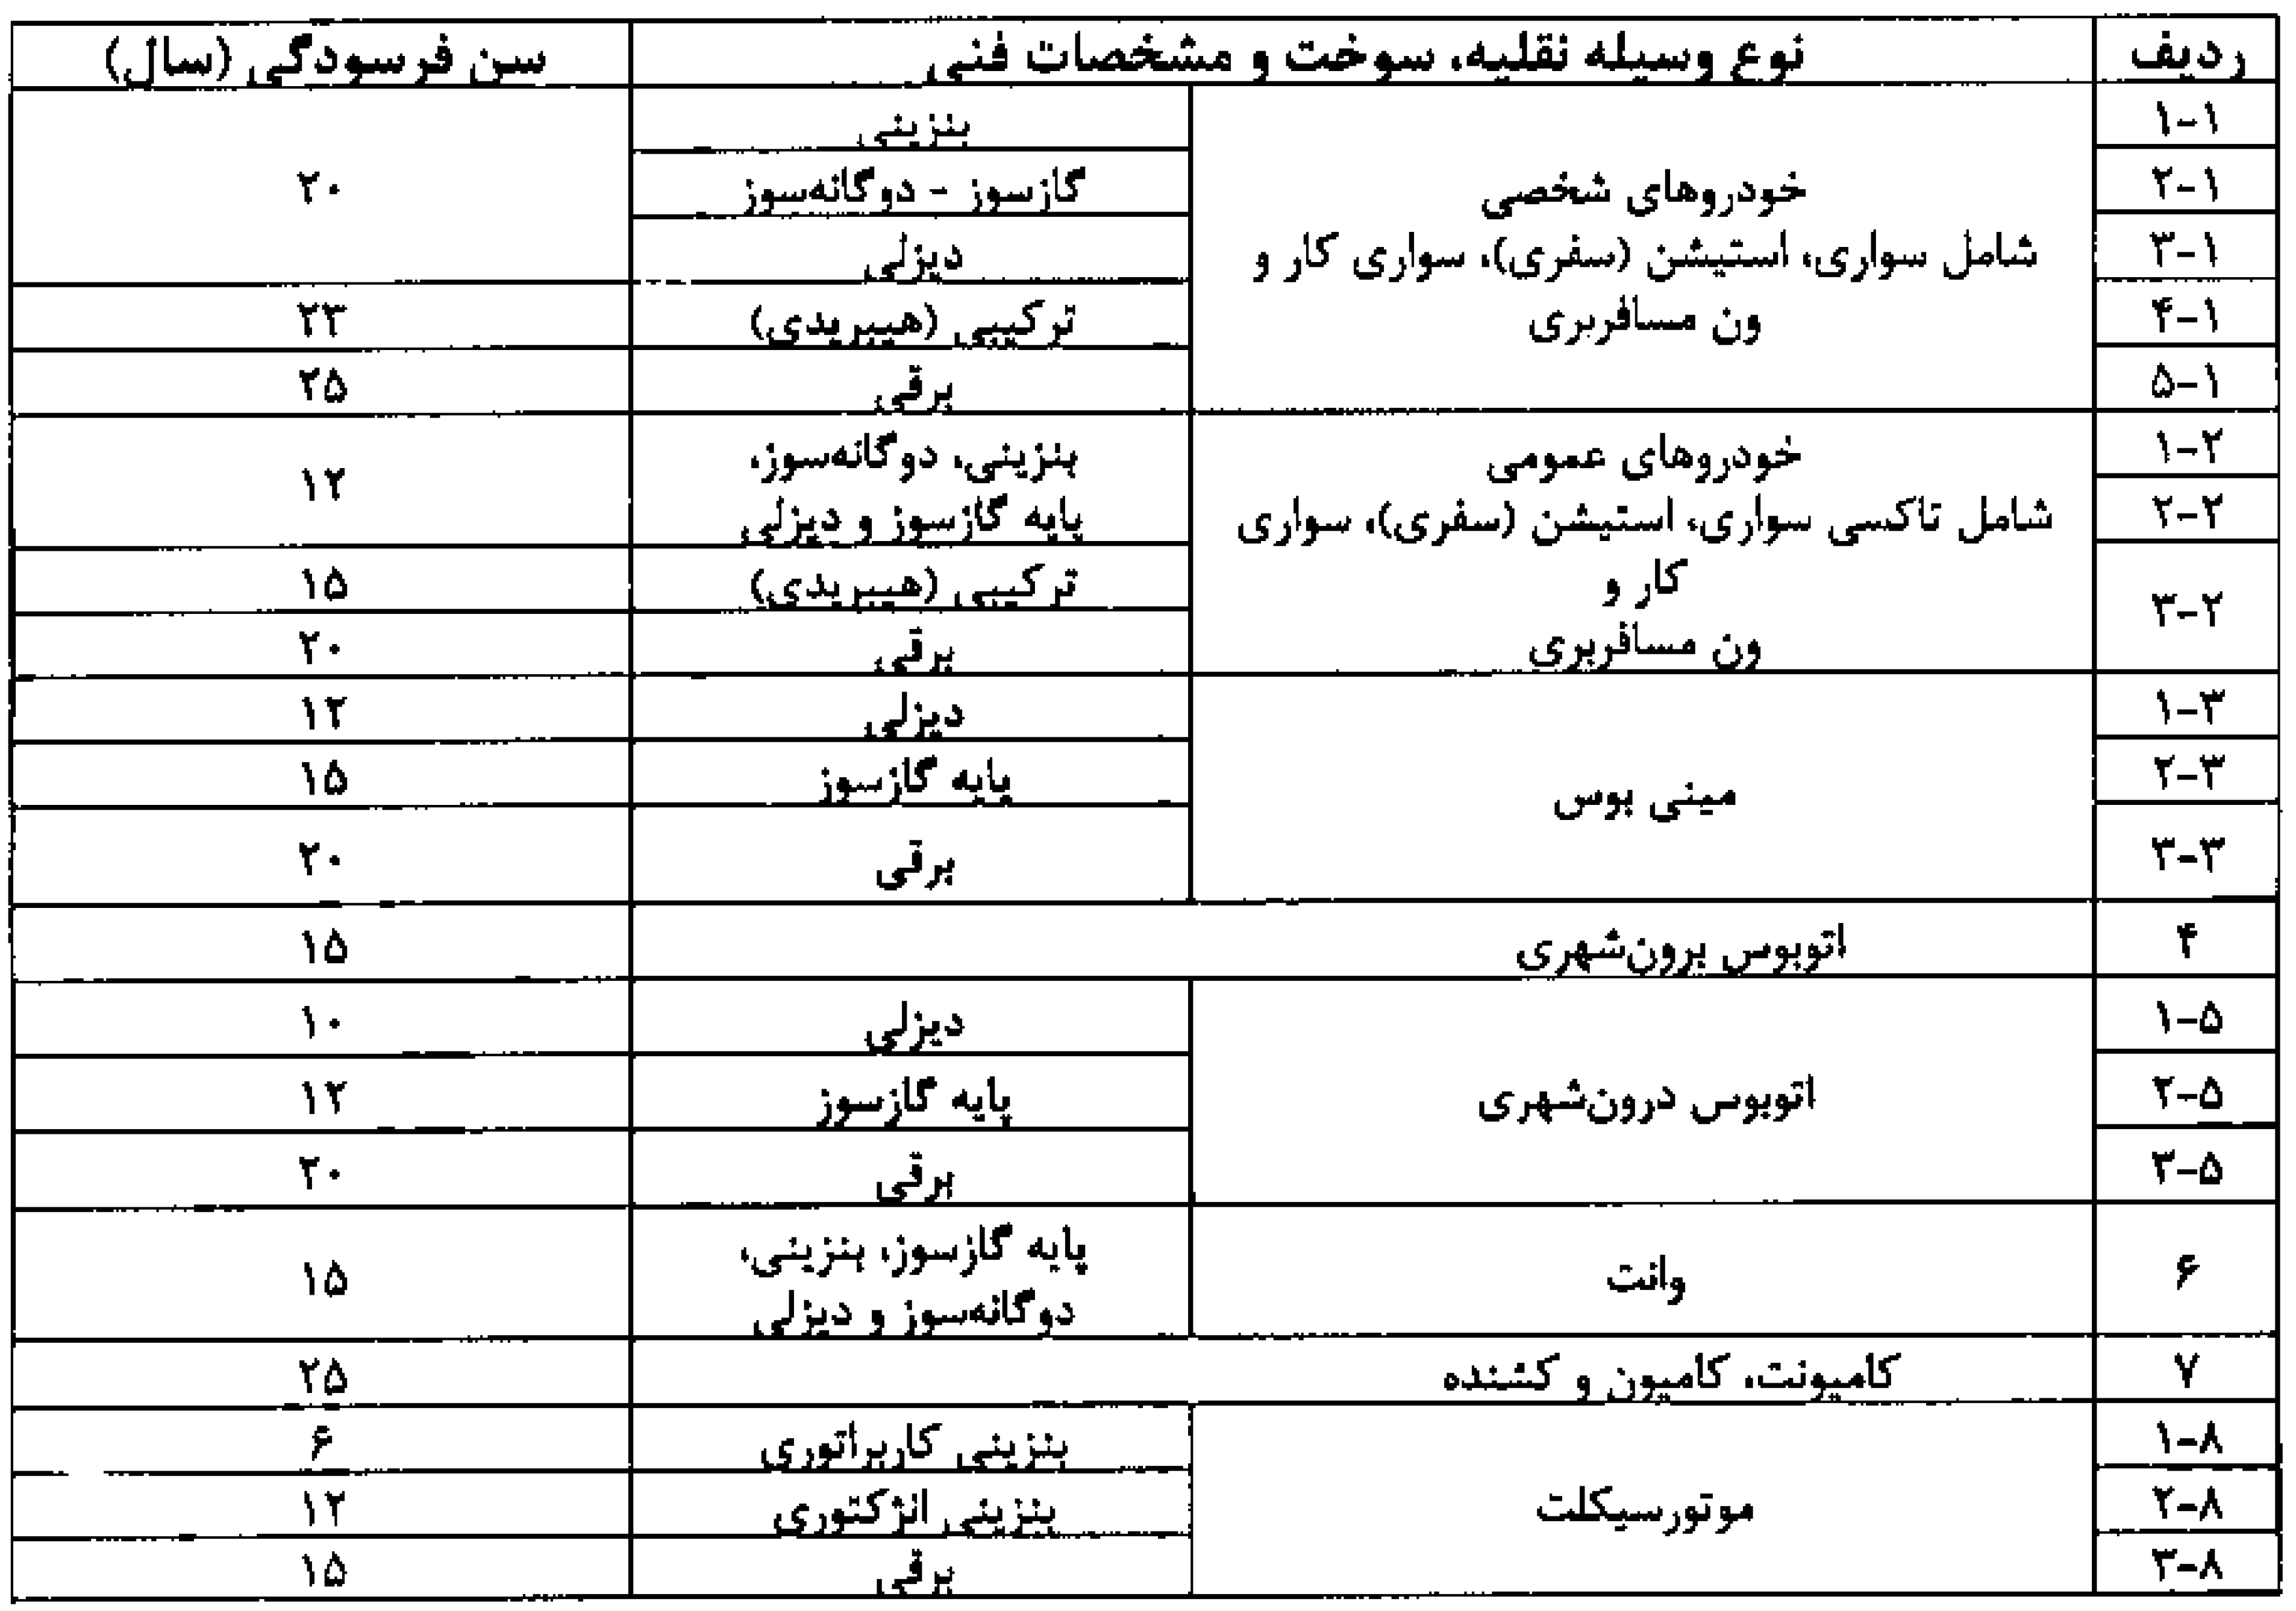 ردیف نوع وسیله نقلیه، سوخت و مشخصات فنی سن فرسودگی (سال)
۱-۱ خودروهای شخصی بنزینی ۲۰
۲-۱ شامل سواری، استیشن (سفری)، سواری کار و گازسوز - دوگانه‌سوز
۳-۱ ون مسافربری دیزلی
۴-۱ ترکیبی (هیبریدی) ۲۳
۵-۱ برقی ۲۵
۱-۲ خودروهای عمومی بنزینی، دوگانه‌سوز، ۱۲
۲-۲ شامل تاکسی سواری، استیشن (سفری)، سواری پایه گازسوز و دیزلی
کار و ترکیبی (هیبریدی) ۱۵
۳-۲ ون مسافربری برقی ۲۰
۱-۳ دیزلی ۱۲
۲-۳ مینی بوس پایه گازسوز ۱۵
۳-۳ برقی ۲۰
۴ اتوبوس برون‌شهری ۱۵
۱-۵ دیزلی ۱۰
۲-۵ اتوبوس درون‌شهری پایه گازسوز ۱۲
۳-۵ برقی ۲۰
۶ وانت پایه گازسوز، بنزینی، ۱۵
دوگانه‌سوز و دیزلی
۷ کامیونت، کامیون و کشنده ۲۵
۱-۸ بنزینی کاربراتوری ۶
۲-۸ موتورسیکلت بنزینی انژکتوری ۱۲
۳-۸ برقی ۱۵